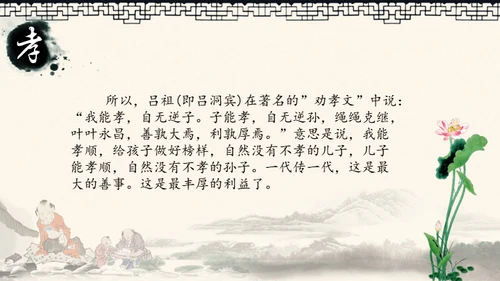 孝
所以，吕祖(即吕洞宾)在著名的”劝孝文”中说：
“我能孝，自无逆子。子能孝，自无逆孙，绳绳克继，
叶叶永昌，善孰大焉，利孰厚焉。”意思是说，我能
孝顺，给孩子做好榜样，自然没有不孝的儿子，儿子
能孝顺，自然没有不孝的孙子。一代传一代，这是最
大的善事。这是最丰厚的利益了。